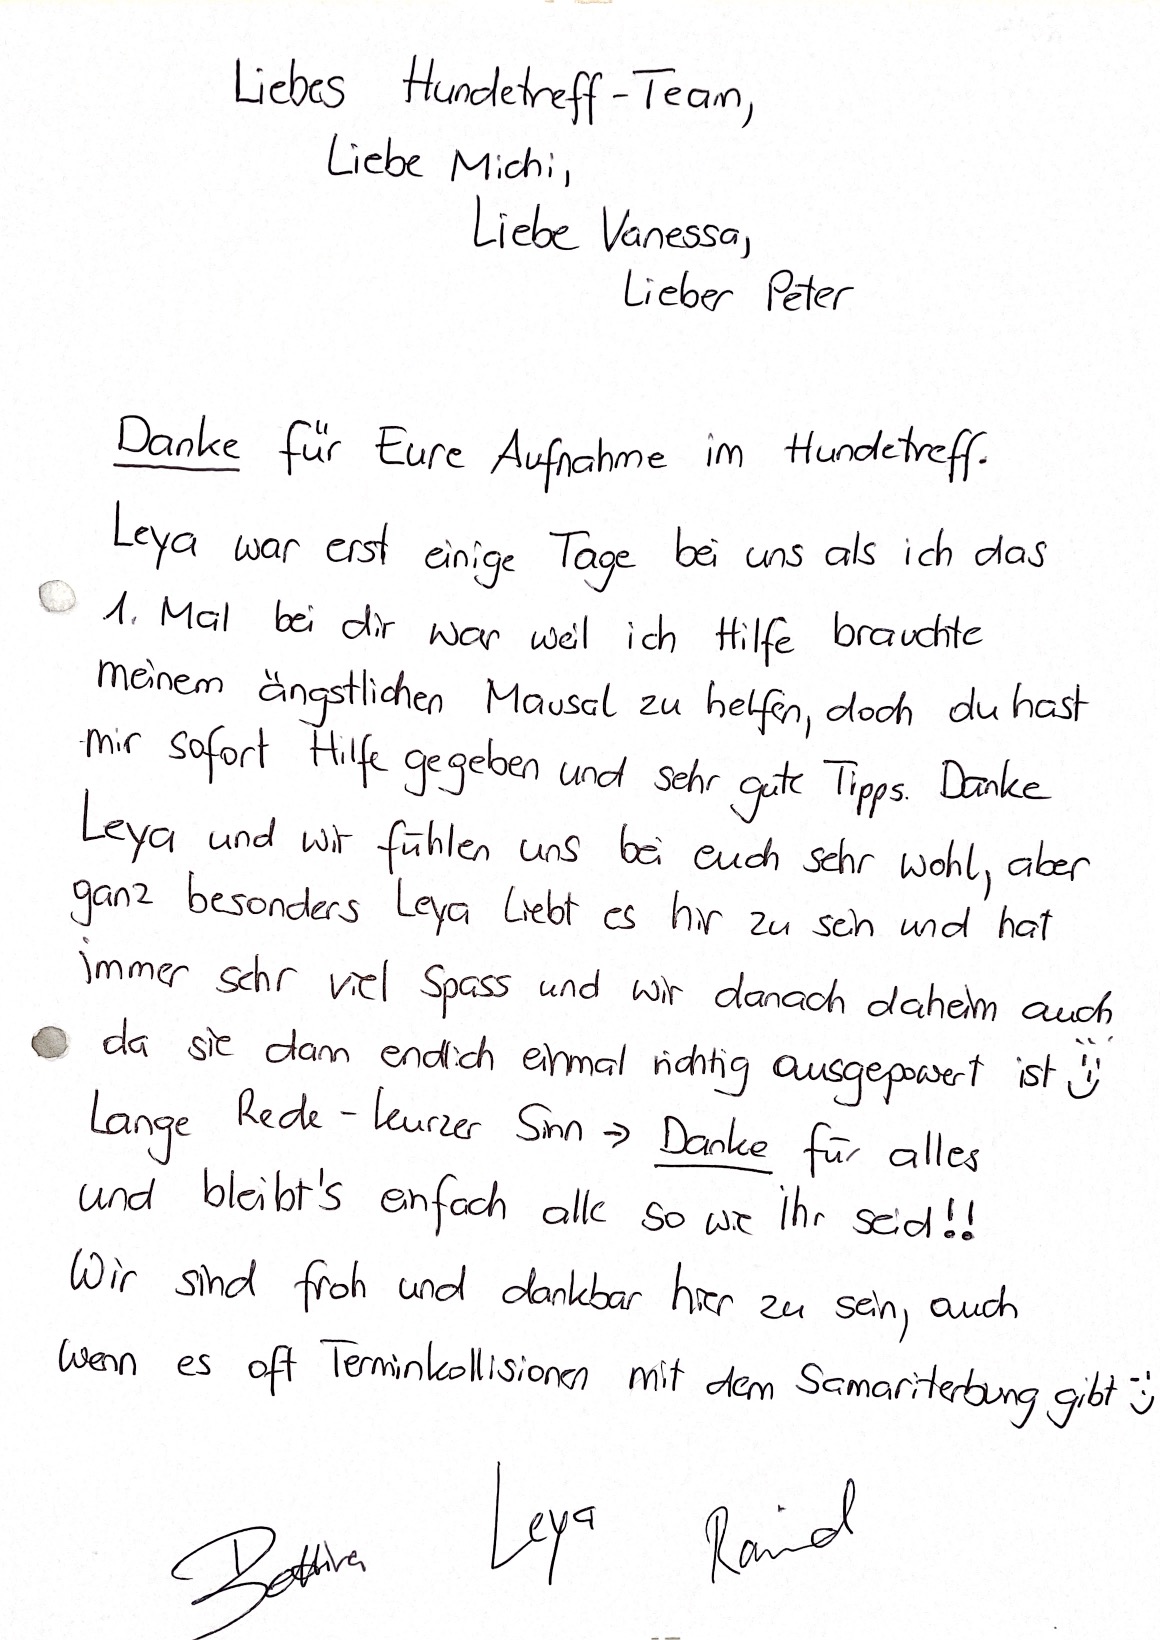 Liebes Hundetreff-Team,
Liebe Michi,
Liebe Vanessa,
Lieber Peter
Danke für Eure Aufnahme im Hundetreff.
Leya war erst einige Tage bei uns als ich das
1. Mal bei dir war weil ich Hilfe brauchte
meinem ängstlichen Mausal zu helfen, doch du hast
mir sofort Hilfe gegeben und sehr gute Tipps. Danke
Leya und wir fühlen uns bei euch sehr wohl, aber
ganz besonders Leya liebt es hir zu sein und hat
immer sehr viel Spass und wir danach daheim auch
da sie dann endlich einmal richtig ausgepowert ist
Lange Rede - kurzer Sinn → Danke für alles
und bleibt's einfach alle so wie Ihr seid!!
Wir sind froh und dankbar hier zu sein, auch
wenn es oft Terminkollisionen mit dem Samariterbung gibt
Bettina Leya